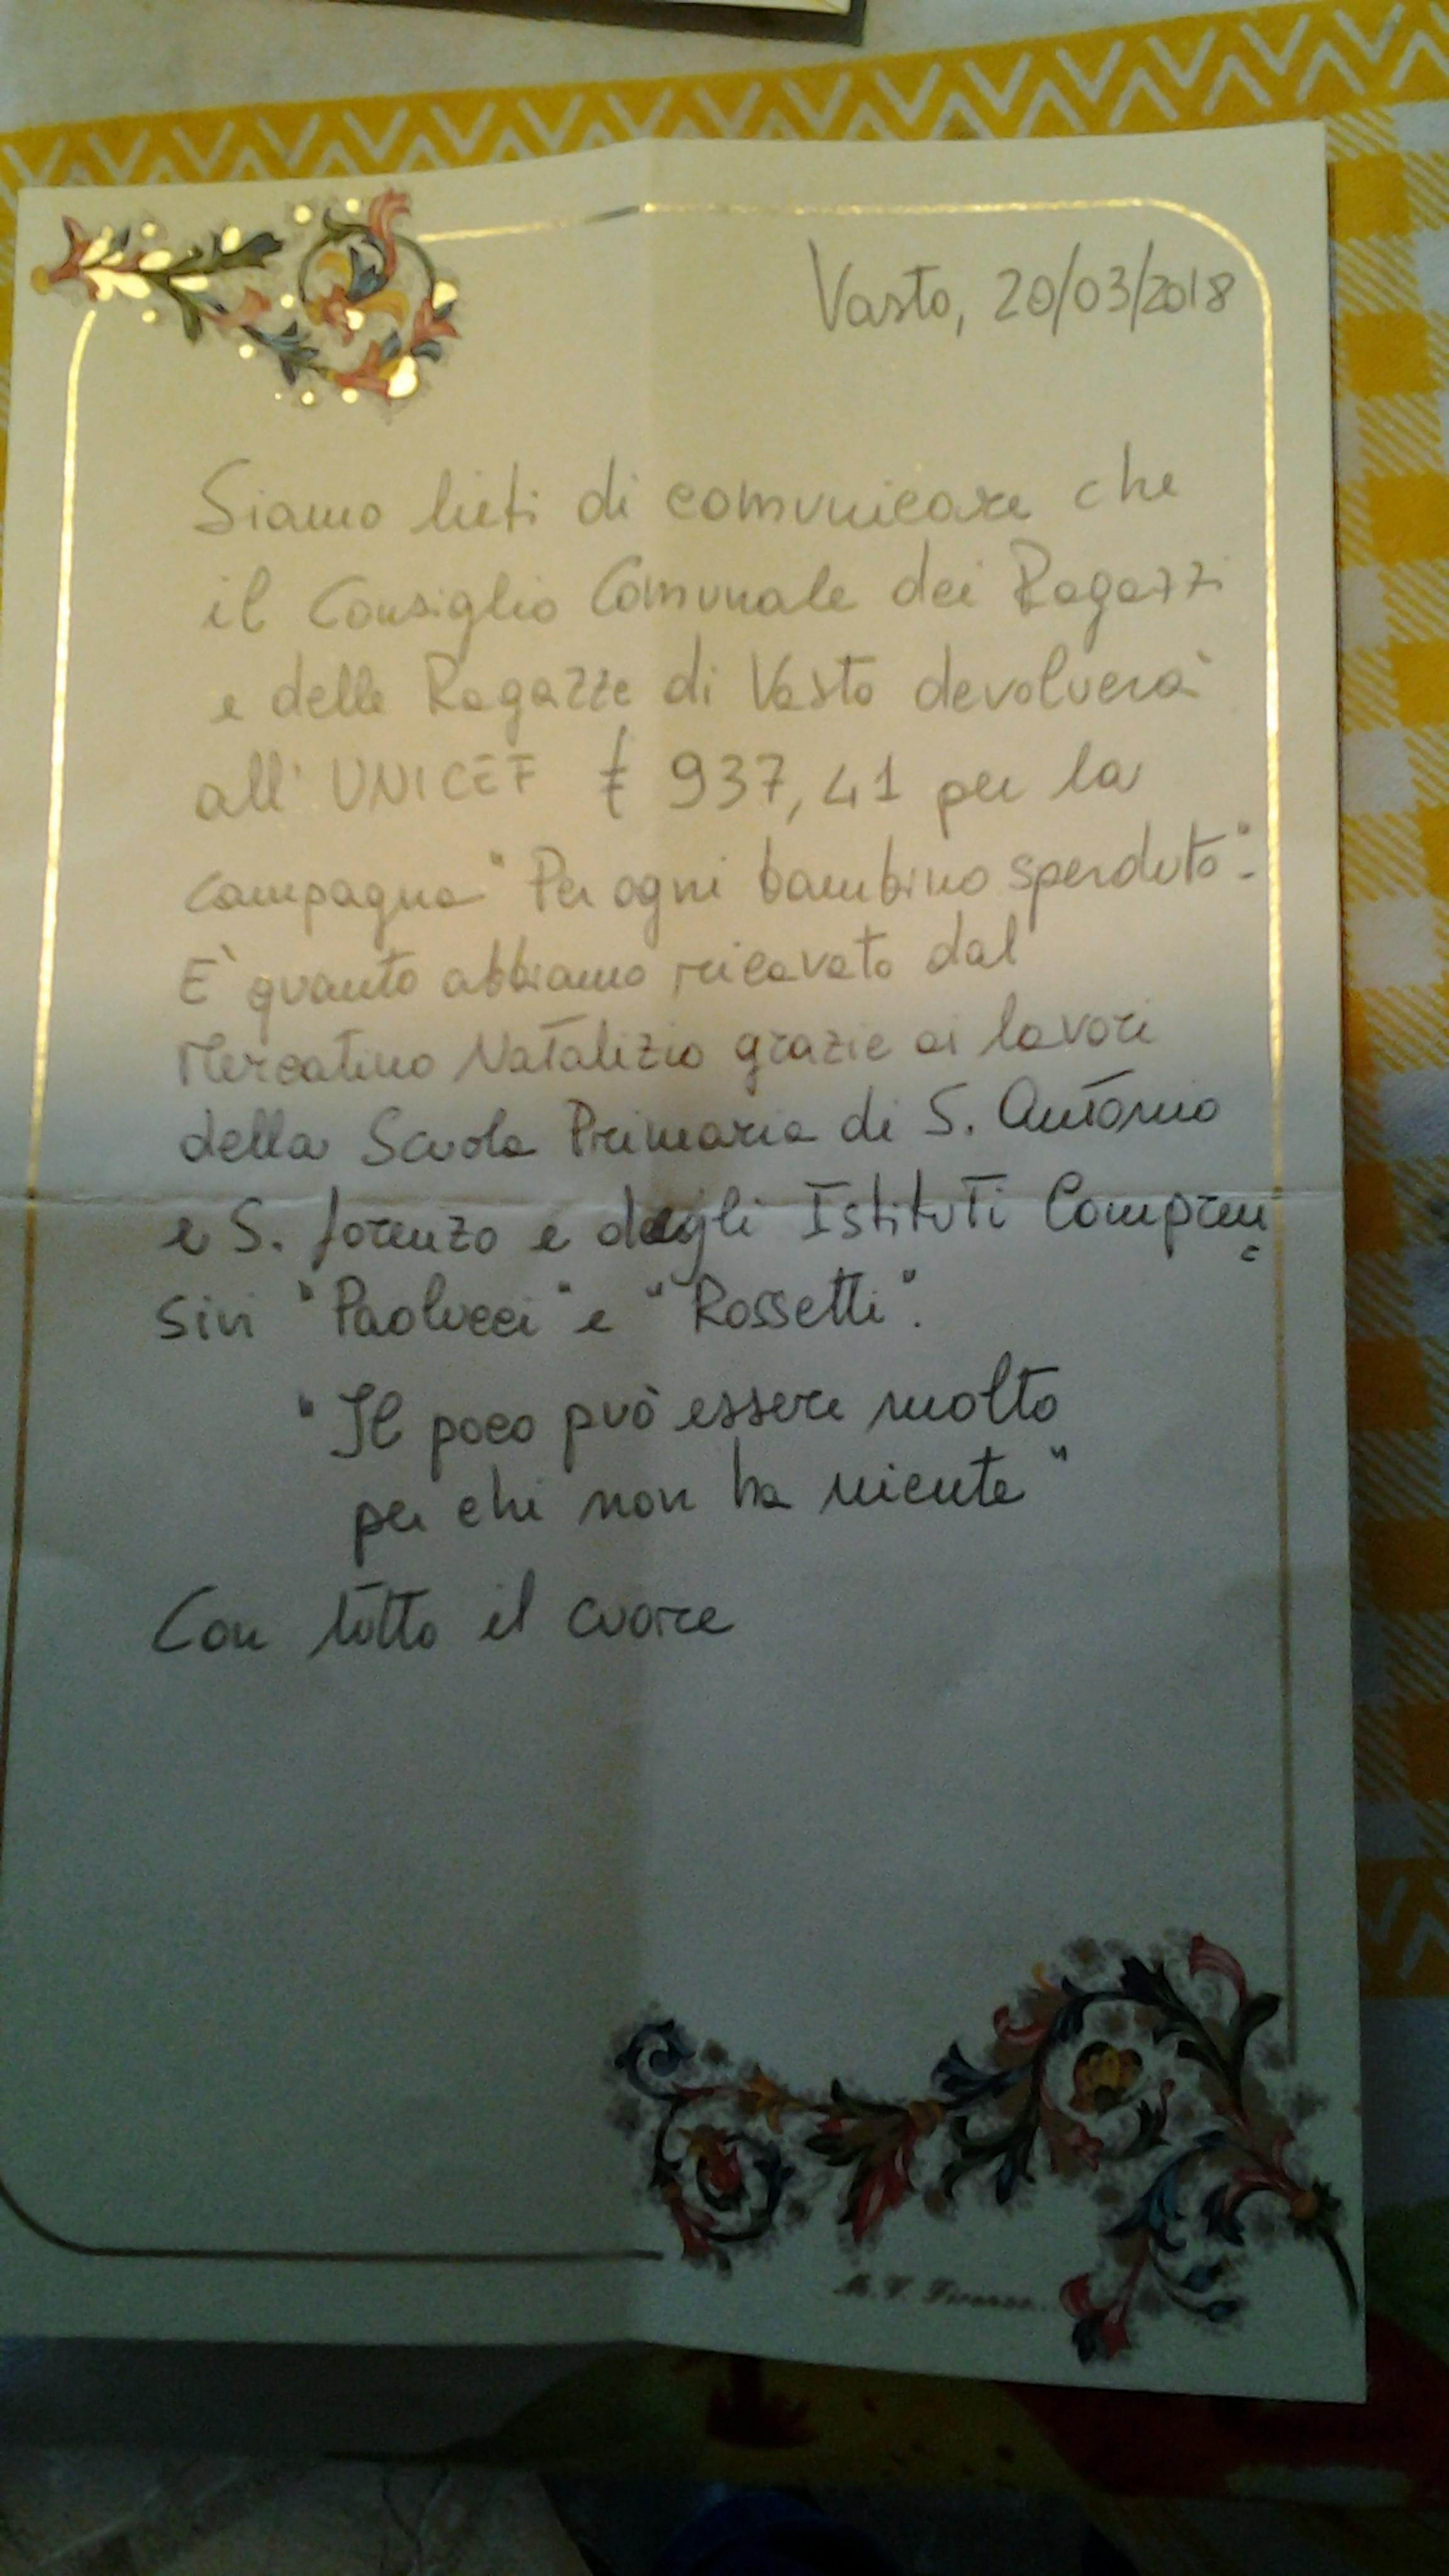 Vasto, 20/03/2018
Siamo lieti di comunicare che
il Consiglio Comunale dei Ragazzi
e delle Ragazze di Vasto devolverà
all'UNICEF € 937,41 per la
campagna "Per ogni bambino sperduto".
E' quanto abbiamo ricavato dal
Mercatino Natalizio grazie ai lavori
della Scuola Primaria di S. Antonio
e S. Lorenzo e degli Istituti Compren=
sivi "Paolucci" e "Rossetti".
"Il poco può essere molto
per chi non ha niente"
Con tutto il cuore